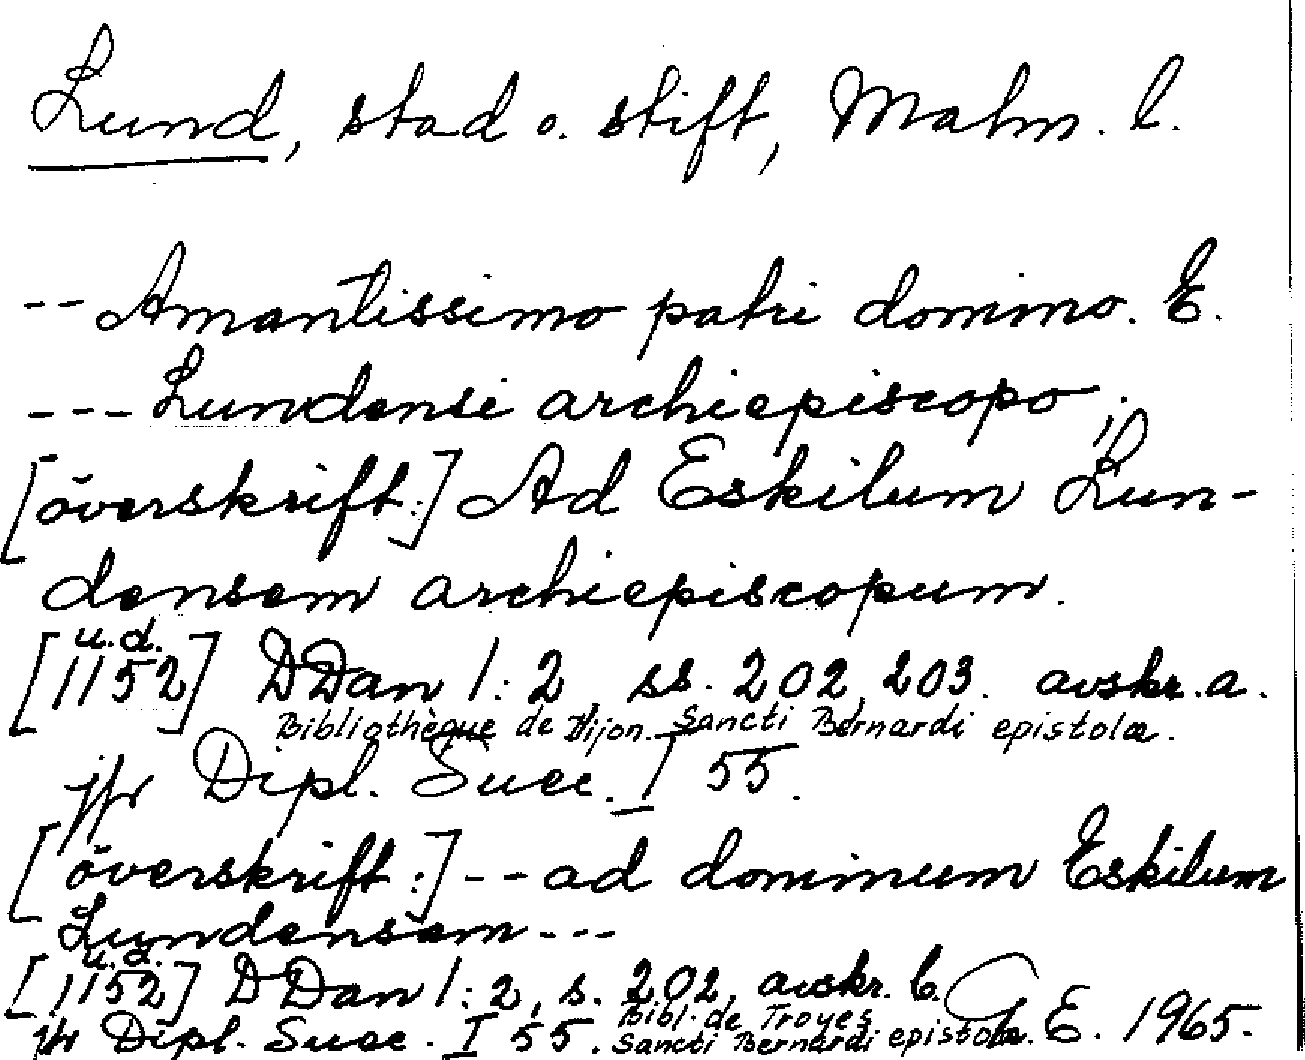 Lund, stad o. stift, Malm. l.
-- Amantissimo patri domino. E.
--- Lundensi archiepiscopo;
[överskrift:] Ad Eskilum Lun-
densem archiepiscopum.
u.d.
[1152] DDan 1:2 ss. 202, 203. avskr. a.
Bibliothèque de Dijon. Sancti Bernardi epistolæ.
jfr Dipl. Suec. I 55.
[överskrift:] -- ad dominum Eskilum
Lundensem ---
u.d.
[1152] DDan 1:2, s. 202, avskr. b.
Bibl. de Troyes
G. E. 1965.
jfr Dipl. Suec. I 55. Sancti Bernardi epistolæ.